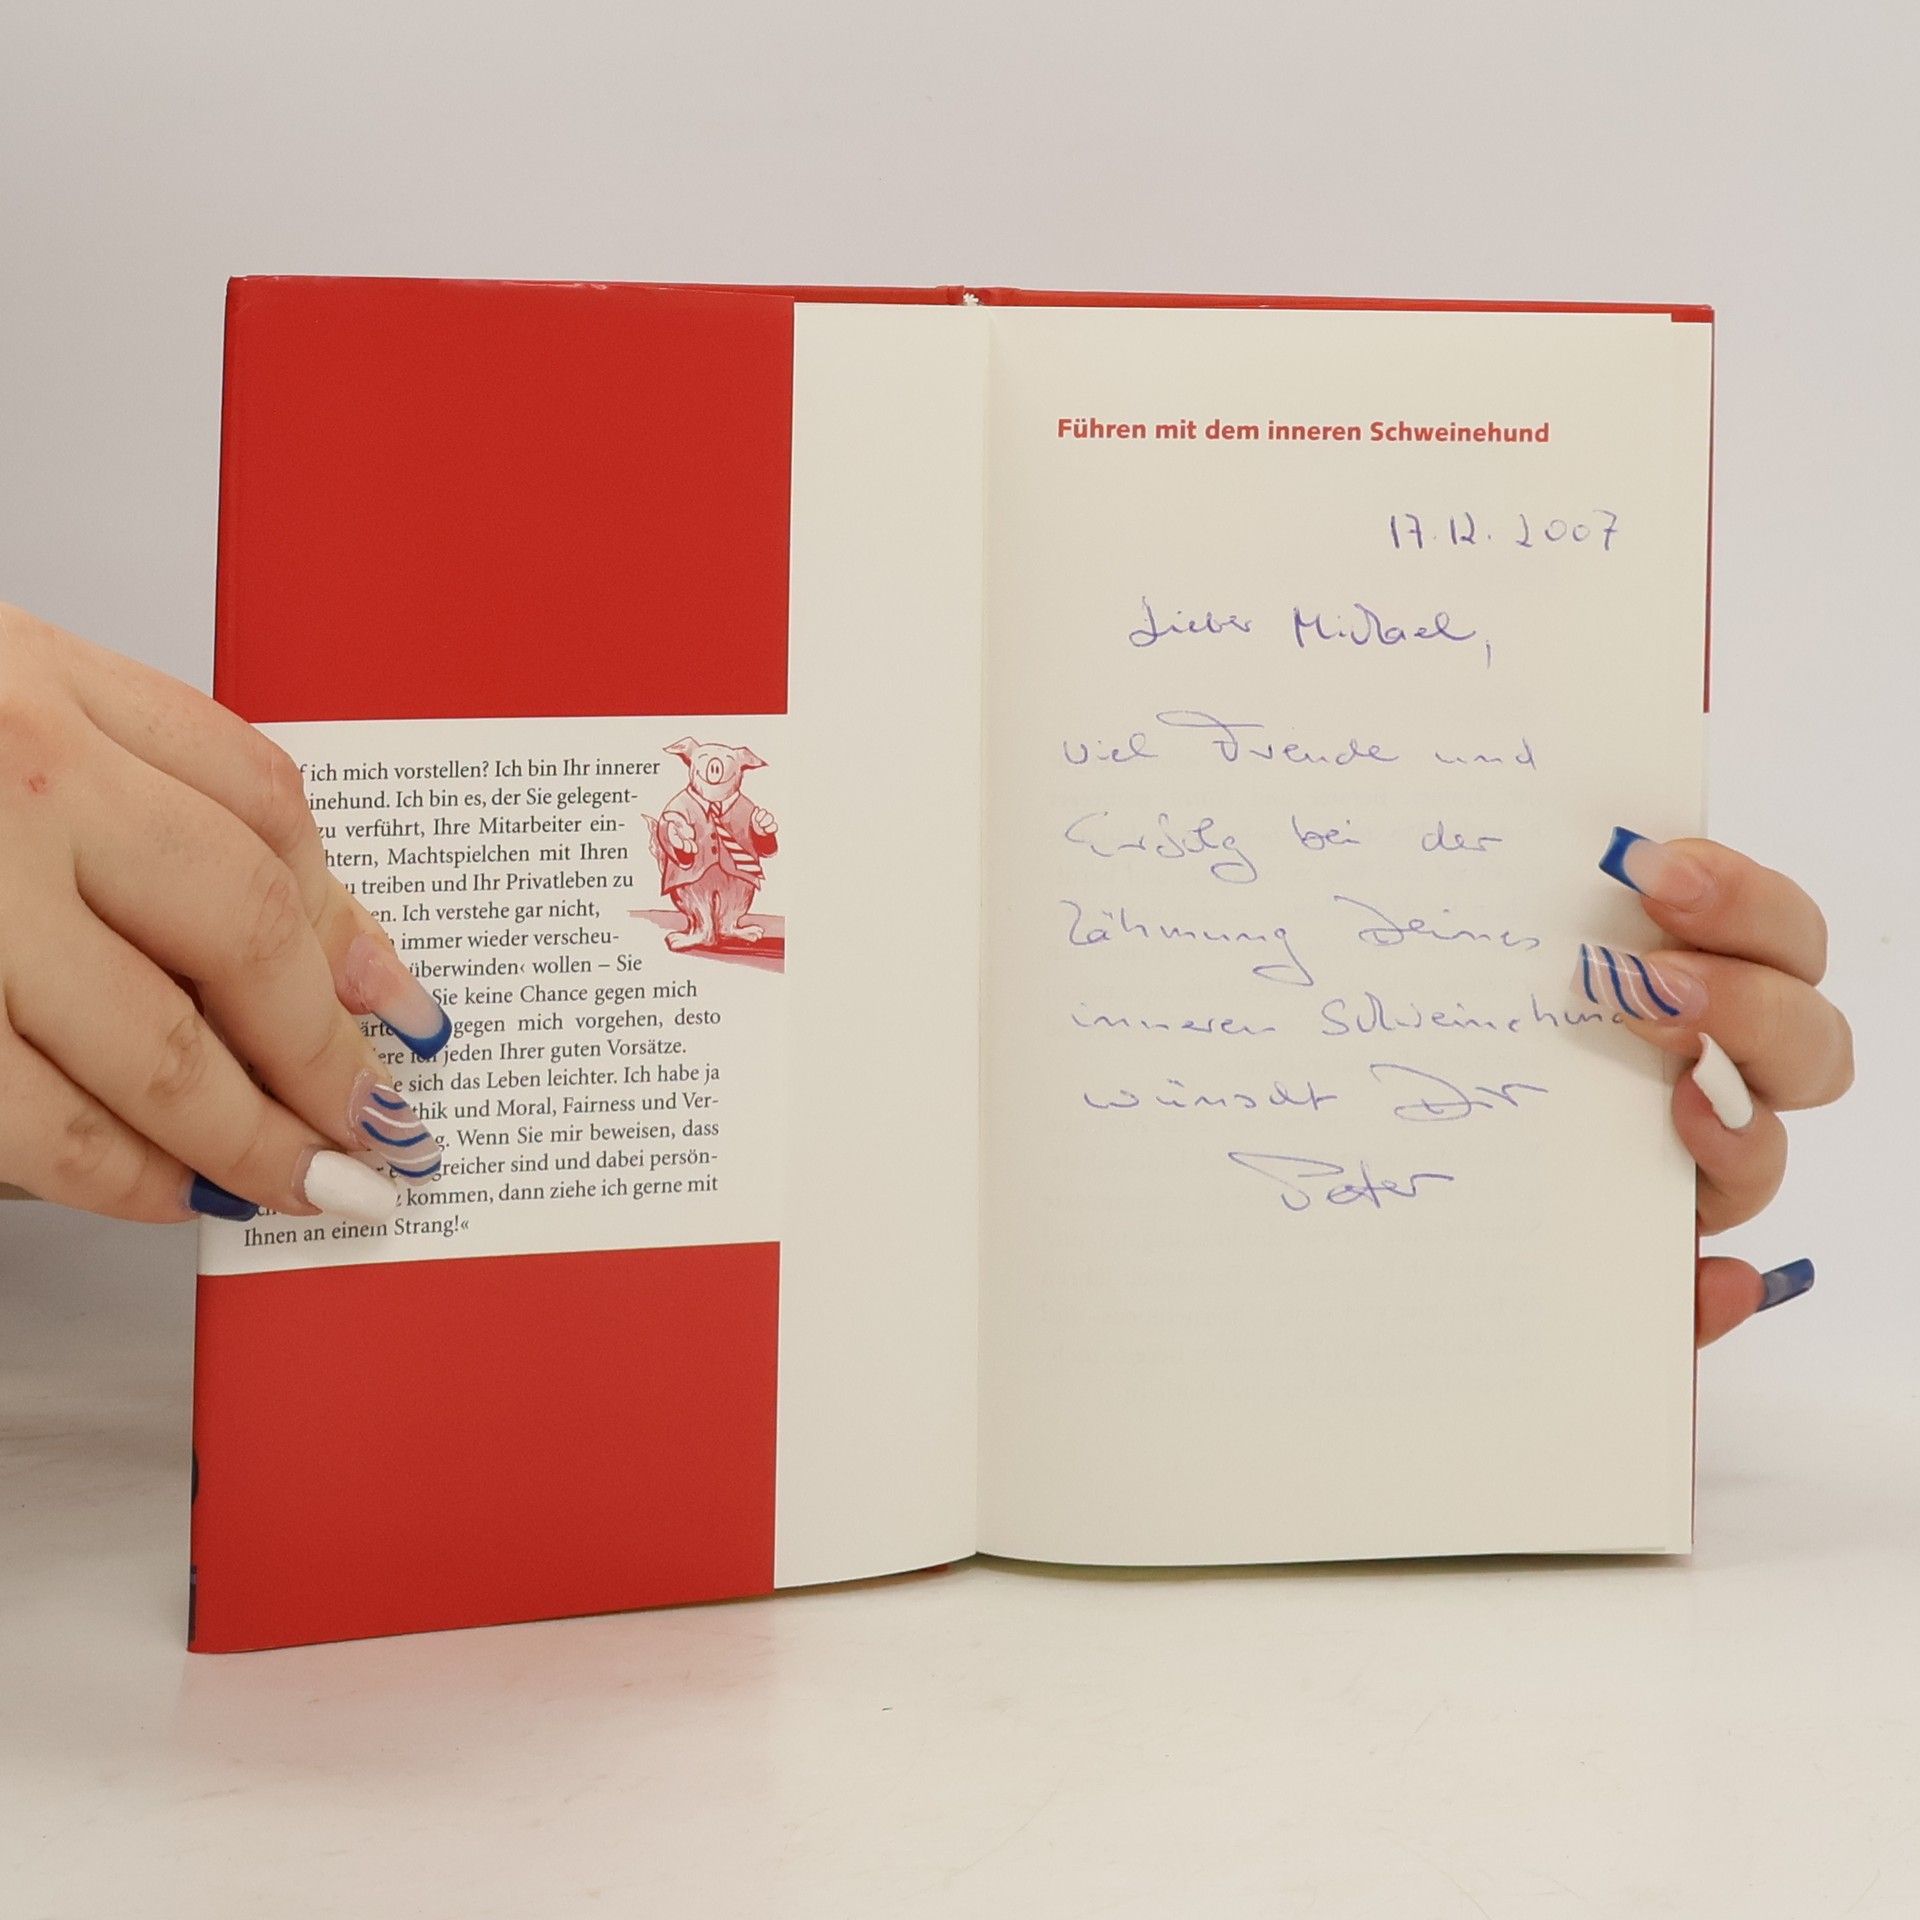 ich mich vorstellen? Ich bin Ihr innerer
inehund. Ich bin es, der Sie gelegent-
zu verführt, Ihre Mitarbeiter ein-
htern, Machtspielchen mit Ihren
treiben und Ihr Privatleben zu
en. Ich verstehe gar nicht,
immer wieder verscheu-
überwinden‹ wollen – Sie
Sie keine Chance gegen mich
gegen mich vorgehen, desto
jeden Ihrer guten Vorsätze.
sich das Leben leichter. Ich habe ja
thik und Moral, Fairness und Ver-
g. Wenn Sie mir beweisen, dass
greicher sind und dabei persön-
kommen, dann ziehe ich gerne mit
Ihnen an einem Strang!«
Führen mit dem inneren Schweinehund
17.12.2007
Lieber Michael,
viel Freude und
Erfolg bei der
Zähmung Deines
inneren Schweinehund
wünscht Dir
Peter